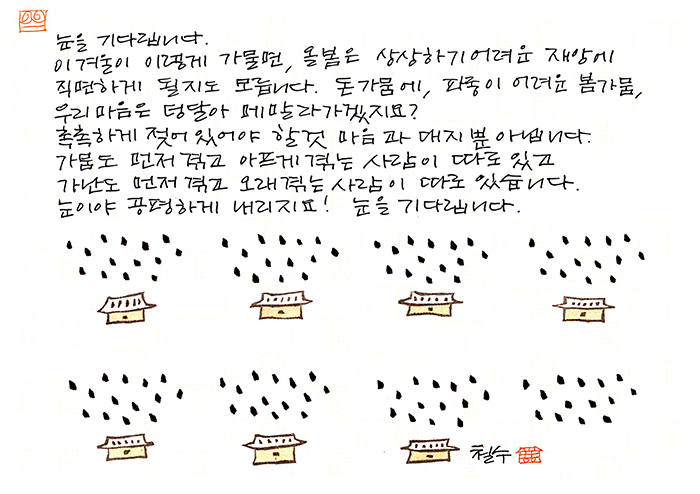 눈을 기다립니다.
이 겨울이 이렇게 가물면, 올봄은 상상하기 어려운 재앙에
직면하게 될지도 모릅니다. 돈가뭄에, 파종이 어려운 봄가뭄,
우리 마음은 덩달아 메말라가겠지요?
촉촉하게 젖어 있어야 할 것 마음과 대지뿐 아닙니다.
가뭄도 먼저 겪고 아프게 겪는 사람이 따로 있고
가난도 먼저 겪고 오래 겪는 사람이 따로 있습니다.
눈이야 공평하게 내리지요! 눈을 기다립니다.
철수